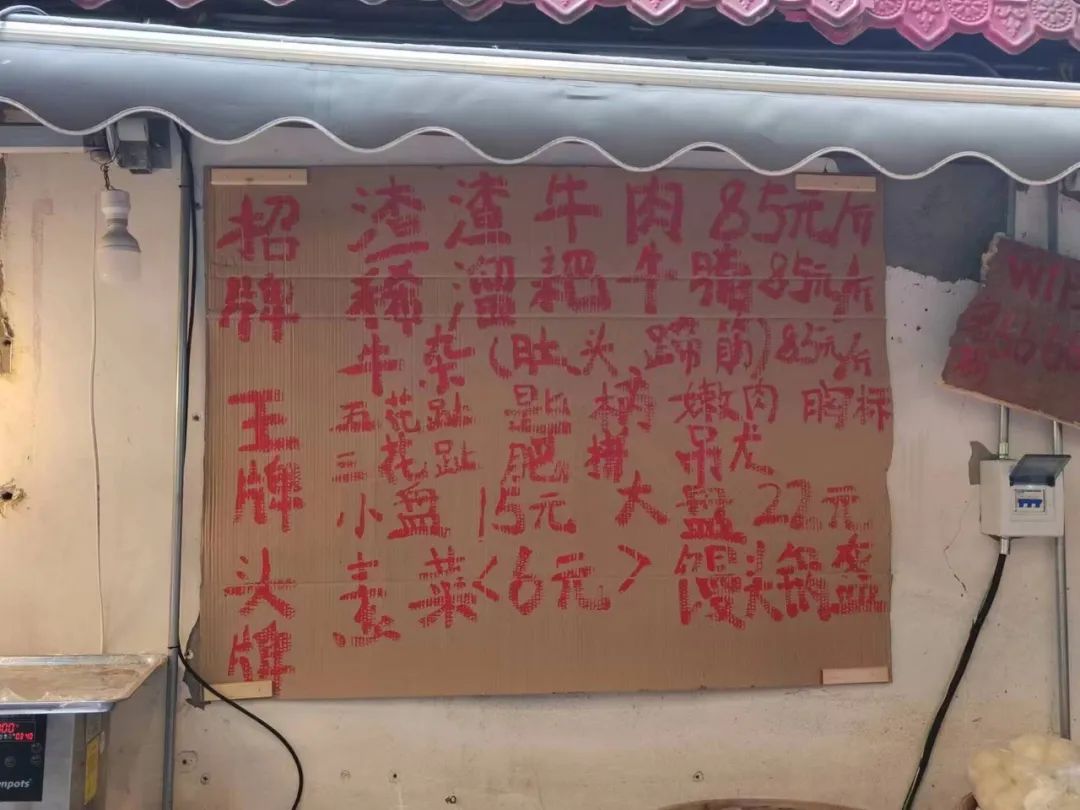 招牌
渣渣牛肉 85元/斤
稀溜耙牛腩 85元/斤
牛杂(肚头 蹄筋) 85元/斤
王牌
五花趾 匙柄 嫩肉 胸标
三花趾 肥拼 吊龙
小盘 15元 大盘 22元
头牌
素菜<6元> 馒头锅盔
WIF
enpots